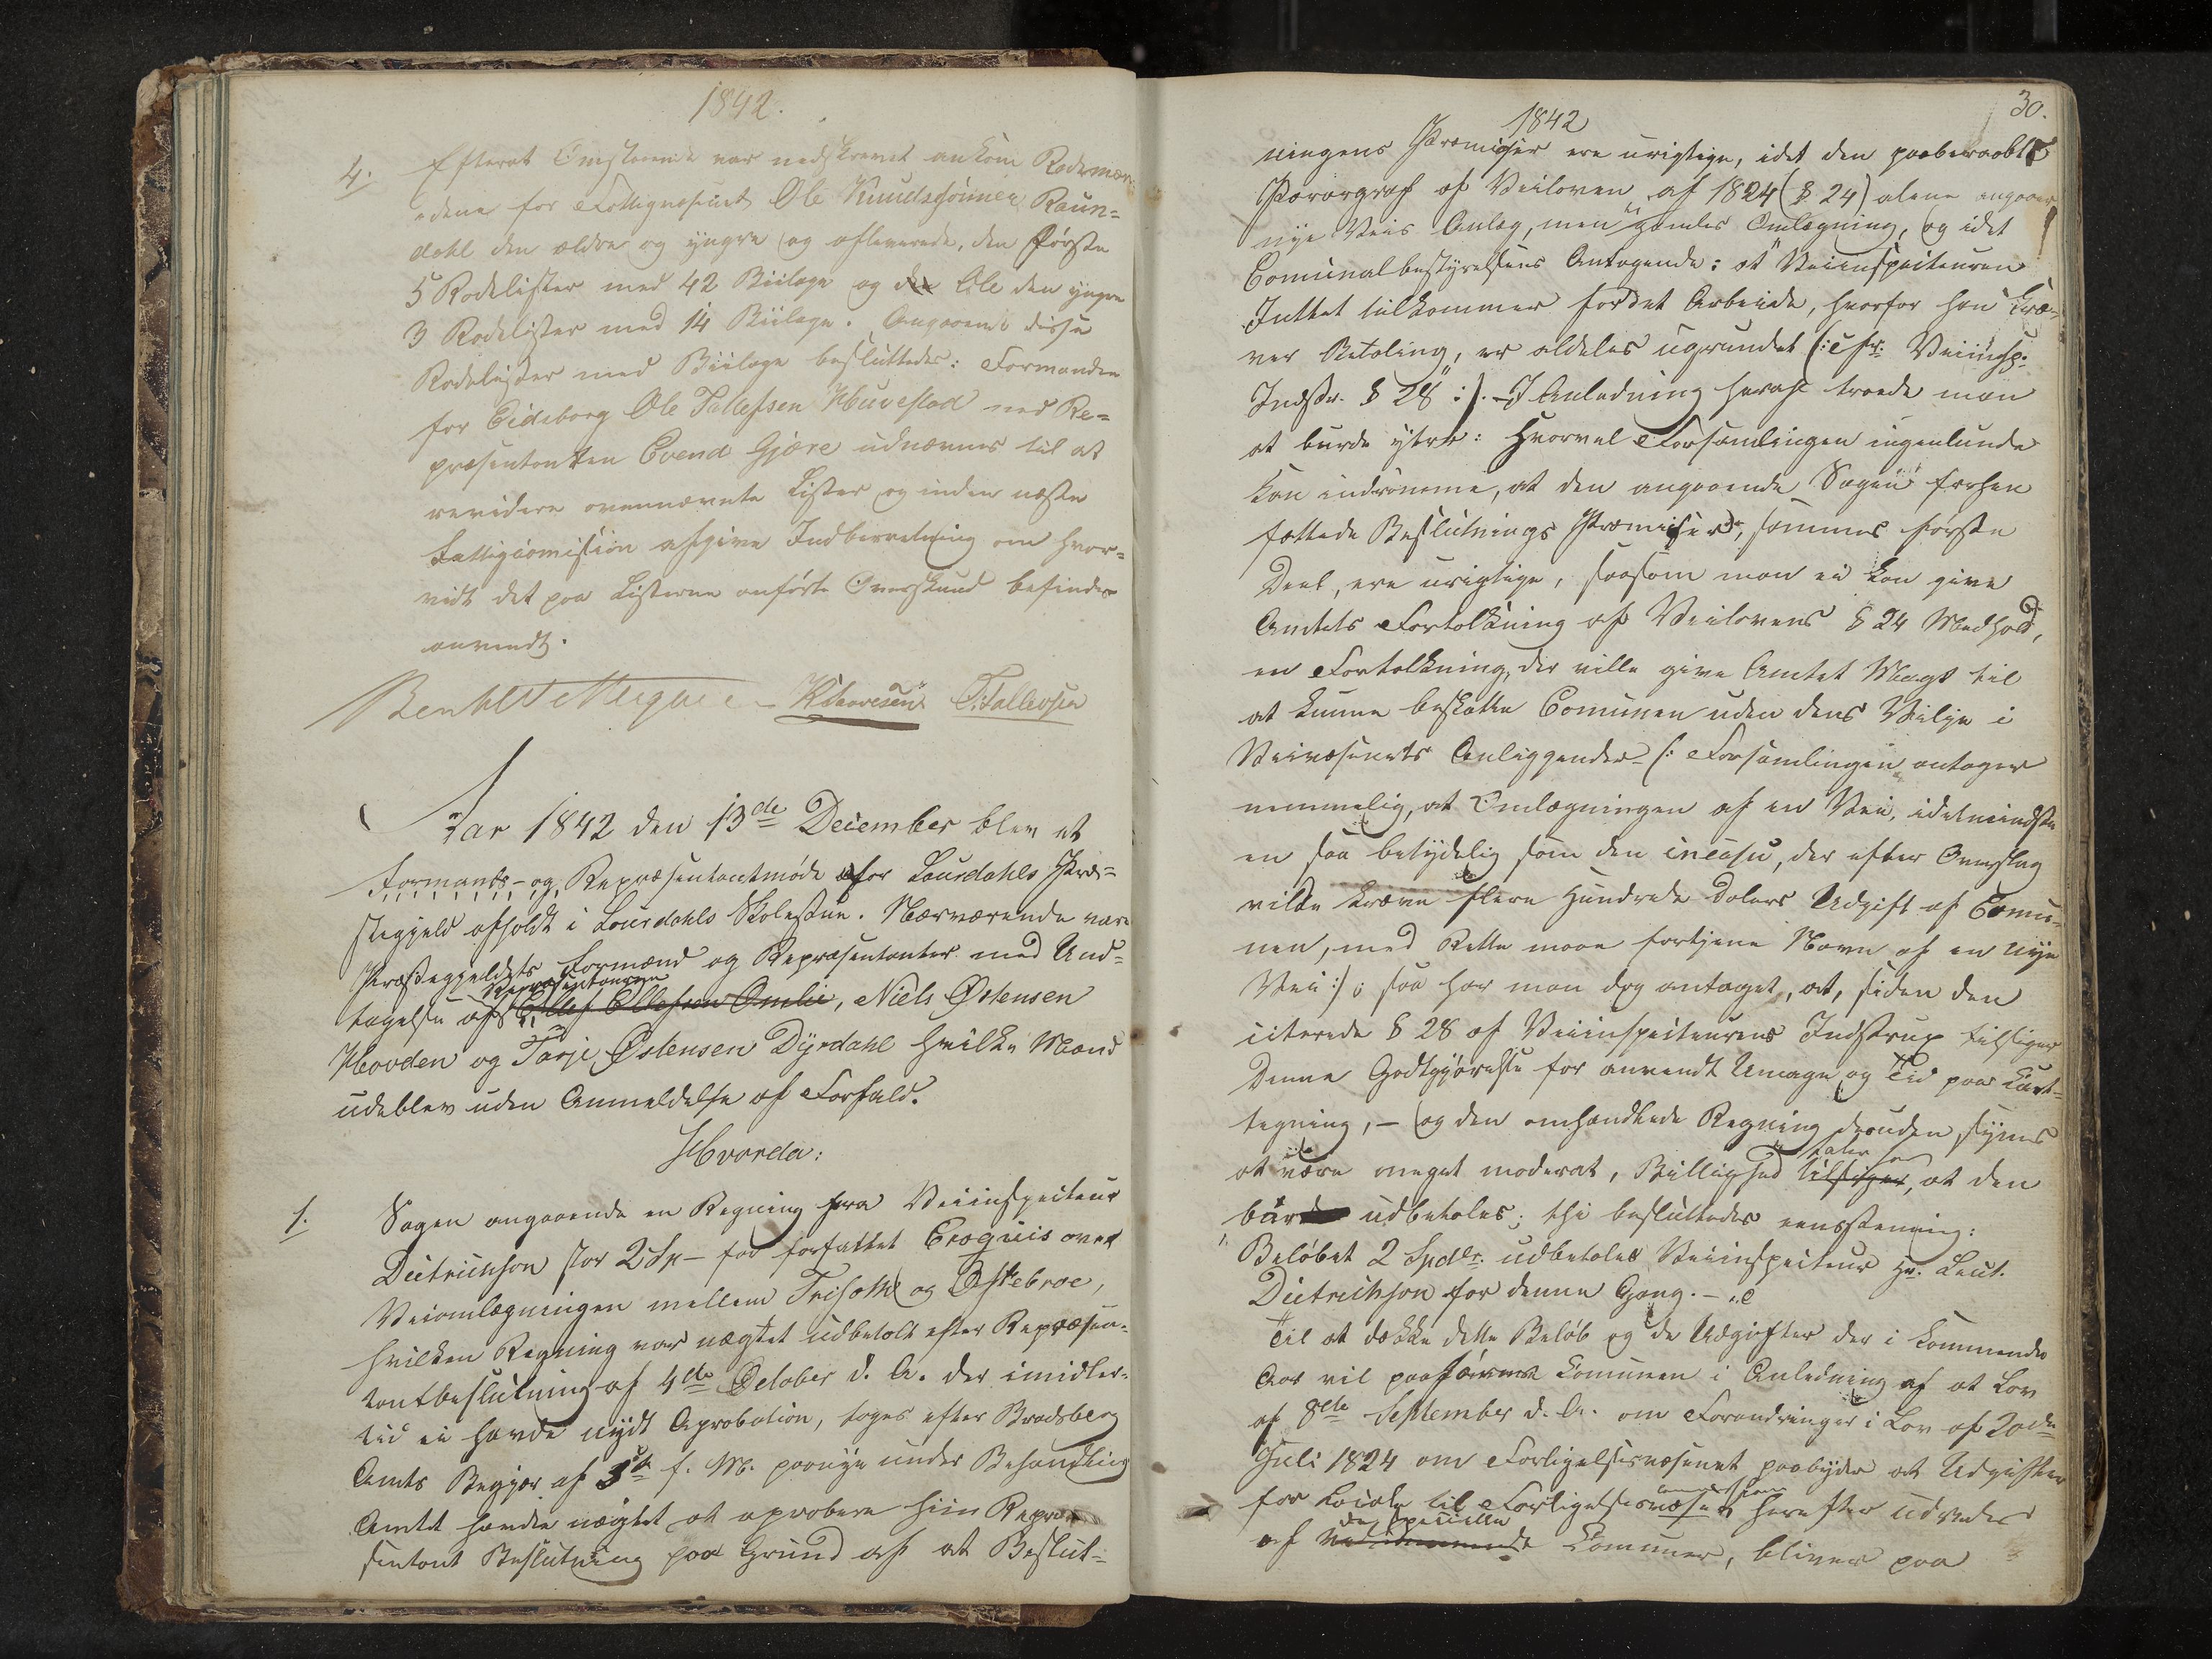 1842.
4. Efterat Omstaaende var nedskrevet ankom Rodemæn-
dene for Fattigvæsenet Ole Knudssønner Raun-
dahl den ældre og yngre og afleverede, den første
5 Rodelister med 42 Biilage og den Ole den yngre
3 Rodelister med 14 Biilage. Angaaende disse
Rodelister med Biilage besluttedes: Formanden
for Eidsborg Ole Tallefsen Huvestad med Re-
præsentanten Evend Gjære udnævnes til at
revidere ovennævnte Lister og inden næste
Fattigcomission afgive Indberetning om hvor-
vidt det paa Listerne anførte Overskud befindes
anvendt.
T. Tallevsen
Aar 1842 den 13de December blev et
Formands- og Repræsentantmøde for Laurdahls Præ-
stegjeld afholdt i Laurdahls Skolestue. Nærværende vare
Præstegjeldets Formænd og Repræsentanter med Und-
Repræsentanterne
tagelse af Ellef Ellefsen Omlie, Niels Østensen
Hovden og Tarje Østensen Dyrdahl hvilke Mænd
udeblev uden Anmeldelse af Forfald.
Hvorda:
1. Sagen angaaende en Regning fra Veiinspecteur
Dietrichson stor 2 Sp- for forfattet Croquis over
Veiomlægningen mellem Trisæth og Østebroe,
hvilken Regning var nægtet udbetalt efter Repræsen-
tantbeslutning af 4de October d. A. der imidler-
tid ei havde nydt Aprobation, toges efter Bradsberg
Amts Begjær af 5te f. M. paanye under Behandling
Amtet havde nægtet at aprobere hiin Repræ-
sentant Beslutning paa Grund af at Beslut-
30.
1842
ningens Præmisser ere urigtige, idet den paaberaabte
Pararagraf af Veiloven af 1824 (§ 24) alene angaaer
nye Veies Anlæg, men ei gamles Omlægning, og idet
Comunalbestyrelsens Antagende: at Veiinspecteuren
Inttet tilkommer for det Arbeide, hvorfor han kræ-
ver Betaling, er aldeles ugrundet (: cfr. Veiinsp.
Instr. § 28 :). I Anledning heraf troede man
at burde ytre: Hvorvel Forsamlingen ingenlunde
kan indrømme, at den angaaende Sagen forhen
fattede Beslutnings Præmisser, sammes første
Deel, ere urigtige, saasom man ei kan give
Amtets Fortolkning af Veilovens § 24 Medhold,
en Fortolkning, der ville give Amtet Magt til
at kunne beskatte Comunen uden dens Vilje i
Veivæsenets Anliggender (: Forsamlingen antager
nemmelig, at Omlægningen af en Vei, idetmindste
en saa betydelig som den in casu, der efter Overslag
vilde kræve flere Hundrede Dalers Udgift af Comu-
nen, med Rette maae fortjene Navn af en nye
Vei :) saa har man dog antaget, at, siden den
citerede § 28 af Veiinspecteurens Instrux tilsiger
Denne Godtgjørelse for anvendt Umage og Tid paa Kart-
tegning, – og den omhandlede Regning desuden synes
taler for
at være meget moderat, Billighed tilsiger, at den
bør udbetales; thi besluttedes eenstemmig:
Beløbet 2 Spdlr. udbetales Veiinspecteur Hr. Leut.
Dietrichson for denne Gang. –
Til at dække dette Beløb og de Udgifter der i kommende
Aar vil paaføres Comunen i Anledning af at Lov
af 8de September d. A. om Forandringer i Lov af 20de
Juli 1824 om Forligelsesvæsenet paabyder at Udgifter
commission
for Locale til Forligelsesvæsen herefter udredes
de specielle
af vedkommende Communer, bliver paa